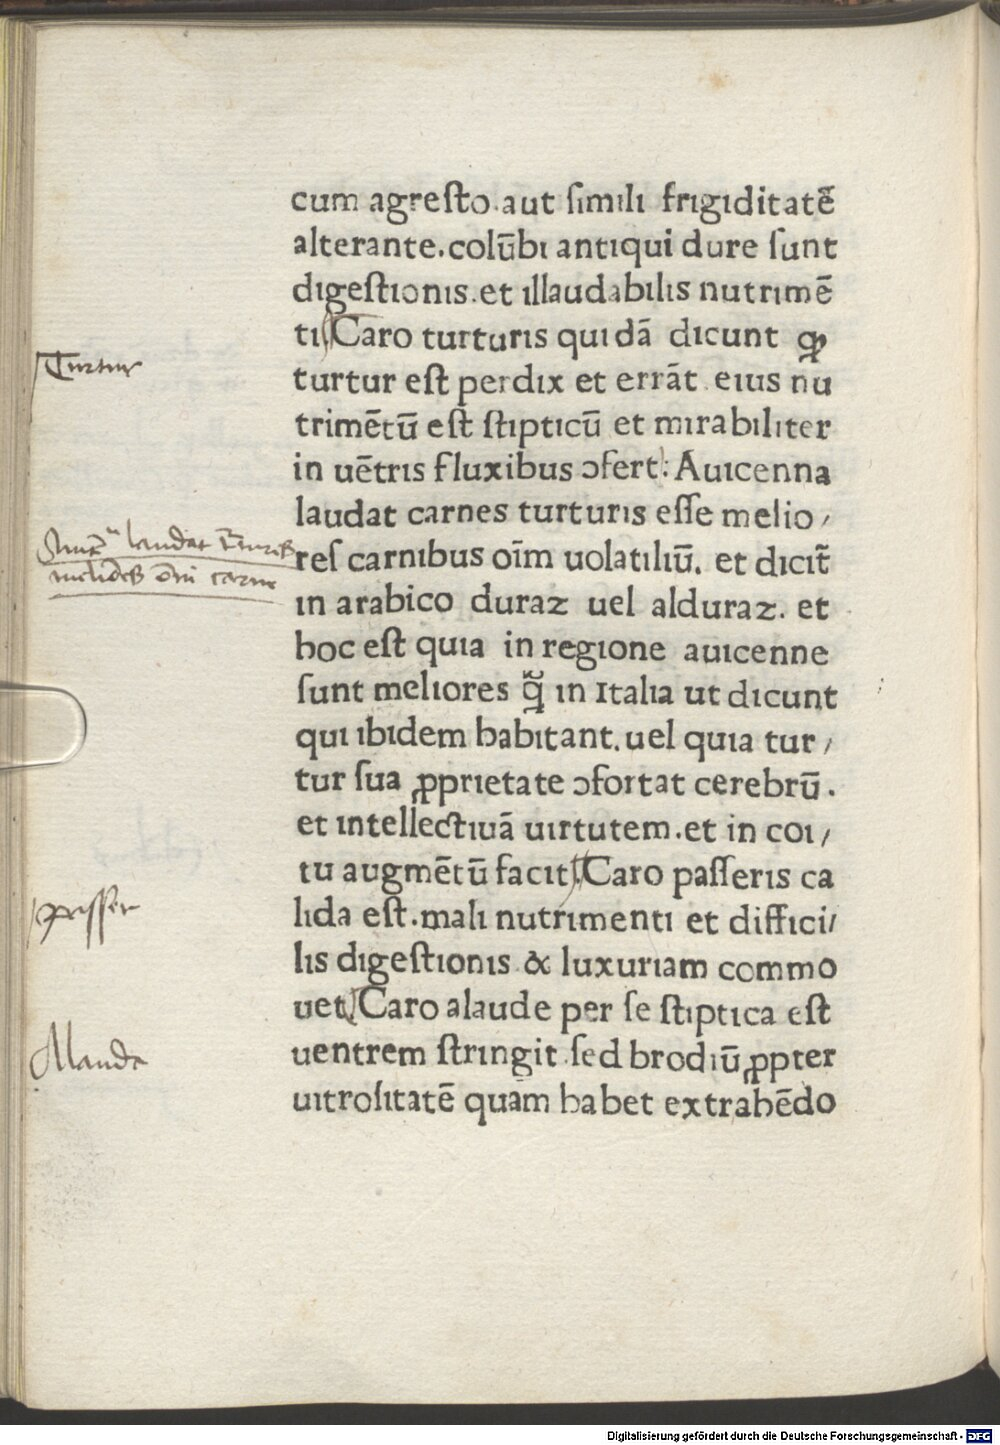 cum agresto.aut simili frigiditatē
alterante.colūbi antiqui dure sunt
digestionis.et illaudabilis nutrimē
ti.Caro turturis quidā dicunt ꝙ
Turtur
turtur est perdix et errāt eius nu
trimētū est stipticū et mirabiliter
in uētris fluxibus ɔfert: Auicenna
laudat carnes turturis esse melio/
laudat
res carnibus oīm uolatiliū. et dicit̄
in arabico duraz uel alduraz. et
hoc est quia in regione auicenne
sunt meliores ꝙ̃ in Italia ut dicunt
qui ibidem habitant.uel quia tur/
tur sua ꝓprietate ɔfortat cerebrū.
et intellectiuā uirtutem.et in coi/
tu augmētū facit.Caro passeris ca
passer
lida est.mali nutrimenti et diffici/
lis digestionis & luxuriam commo
uet.Caro alaude per se stiptica est
Alauda
uentrem stringit.sed brodiū ꝓpter
uitrositatē quam habet extrahēdo
Digitalisierung gefördert durch die Deutsche Forschungsgemeinschaft - DFG